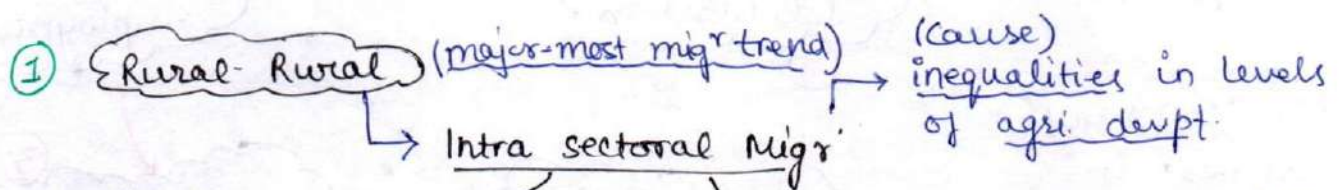 ① Rural-Rural (major-most migr trend) → (cause)
inequalities in levels
of agri. devpt.
Intra sectoral Migr